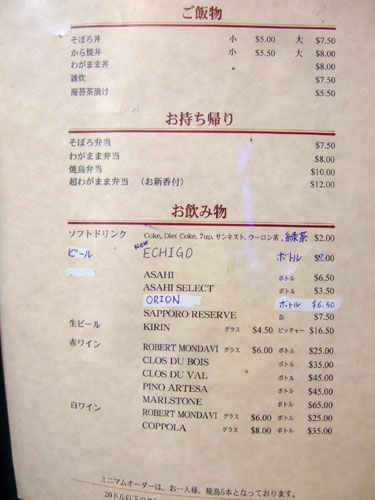 ご飯物
そぼろ丼 小 $5.00 大 $7.50
から焼丼 小 $5.50 大 $8.00
わがまま丼 $8.00
雑炊 $7.50
海苔茶漬け $5.50
お持ち帰り
そぼろ弁当 $7.50
わがまま弁当 $8.00
焼鳥弁当 $10.00
超わがまま弁当 (お新香付) $12.00
お飲み物
ソフトドリンク Coke, Diet Coke, 7up, サンキスト, ウーロン茶, 緑茶 $2.00
NEW
ビール ECHIGO ボトル $8.00
ASAHI ボトル $6.50
ASAHI SELECT ボトル $3.50
ORION ボトル $6.50
SAPPORO RESERVE 缶 $7.50
生ビール KIRIN グラス $4.50 ピッチャー $16.50
赤ワイン ROBERT MONDAVI グラス $6.00 ボトル $25.00
CLOS DU BOIS ボトル $35.00
CLOS DU VAL ボトル $45.00
PINO ARTESA ボトル $45.00
MARLSTONE ボトル $65.00
白ワイン ROBERT MONDAVI グラス $6.00 ボトル $25.00
COPPOLA グラス $8.00 ボトル $35.00
ミニマムオーダーは、お一人様、焼鳥5本となっております。
20ドル以下の